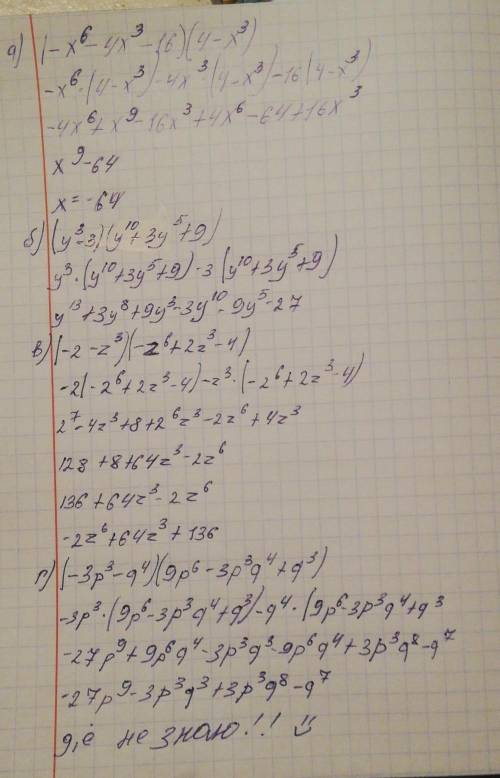 а) (-x⁶-4x³-16)(4-x³)
-x⁶·(4-x³)-4x³(4-x³)-16(4-x³)
-4x⁶+x⁹-16x³+4x⁶-64+16x³
x⁹-64
x=-64
б) (y³-3)(y¹⁰+3y⁵+9)
y³·(y¹⁰+3y⁵+9)-3(y¹⁰+3y⁵+9)
y¹³+3y⁸+9y³-3y¹⁰-9y⁵-27
в) (-2-z³)(-2⁶+2z³-4)
-2(-2⁶+2z³-4)-z³·(-2⁶+2z³-4)
2⁷-4z³+8+2⁶z³-2z⁶+4z³
128+8+64z³-2z⁶
136+64z³-2z⁶
-2z⁶+64z³+136
г) (-3p³-q⁴)(9p⁶-3p³q⁴+q³)
-3p³·(9p⁶-3p³q⁴+q³)-q⁴·(9p⁶-3p³q⁴+q³
-27p⁹+9p⁶q⁴-3p³q³-9p⁶q⁴+3p³q⁸-q⁷
-27p⁹-3p³q³+3p³q⁸-q⁷
д,ё не знаю!!